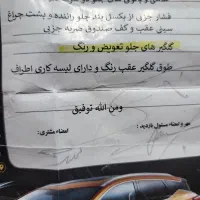 فشار جزیی از یکسل بند جلو راننده و پشت چراغ
سینی عقب و کف صندوق ضربه جزیی
گلگیر های جلو تعویض و رنگ
طوق گلگیر عقب رنگ و دارای لیسه کاری اطراف
ومن الله توفیق
مهر و امضاء مسئول بازدید :
امضاء مشتری: